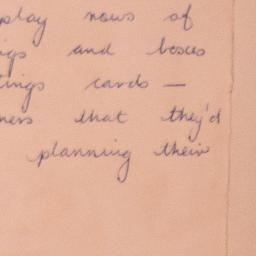 play rows of
igs and boxes
ings cards —
ners that they'd
planning their